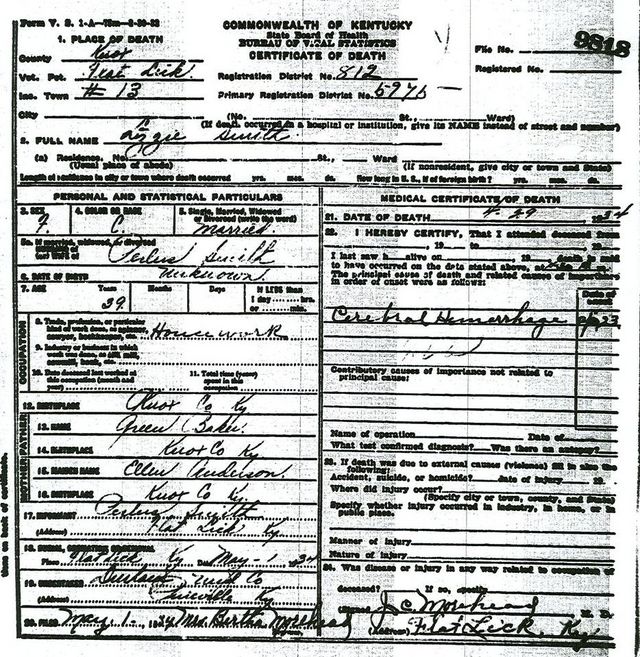 Form V. S. 1-A
COMMONWEALTH OF KENTUCKY
State Board of Health
BUREAU OF VITAL STATISTICS
CERTIFICATE OF DEATH
1. PLACE OF DEATH
County Knox
Vot. Pct. Flat Lick
Inc. Town # 13
City
Registration District No. 812
Primary Registration District No. 5976
File No. 9818
Registered No.
(No. St., Ward)
(If death occurred in a hospital or institution, give its NAME instead of street and number)
2. FULL NAME Lizzie Smith
(a) Residence. No. St., Ward
(Usual place of abode) (If nonresident, give city or town and State)
Length of residence in city or town where death occurred yrs. mos. ds. How long in U. S., if of foreign birth? yrs. mos. ds.
PERSONAL AND STATISTICAL PARTICULARS
3. SEX F. 4. COLOR OR RACE C. 5. Single, Married, Widowed or Divorced (write the word) Married
5a. If married, widowed, or divorced
Smith
6. DATE OF BIRTH Unknown
7. AGE Years Months Days If LESS than
39 1 day hrs. or min.
OCCUPATION
8. Trade, profession, or particular kind of work done, as spinner, sawyer, bookkeeper, etc. Housework
9. Industry or business in which work was done, as silk mill, sawmill, bank, etc.
10. Date deceased last worked at this occupation (month and year)
11. Total time (years) spent in this occupation
12. BIRTHPLACE Knox Co Ky
FATHER
13. NAME Green Baker
14. BIRTHPLACE Knox Co Ky
MOTHER
15. MAIDEN NAME Ellen Anderson
16. BIRTHPLACE Knox Co Ky.
17. INFORMANT Smith
(Address) Flat Lick Ky
18. BURIAL, CREMATION, OR REMOVAL
Place Flat Lick Ky Date May 1 1934
19. UNDERTAKER Co
(Address) Pineville Ky
20. FILED May 1-, 1934 Mrs. Bertha Morehead
MEDICAL CERTIFICATE OF DEATH
21. DATE OF DEATH 4 29 1934
22. I HEREBY CERTIFY, That I attended deceased from
, 19 to , 19
I last saw h alive on , 19 death is said
to have occurred on the date stated above, at m.
The principal cause of death and related causes of importance
in order of onset were as follows:
Date of onset
Cerebral Hemorrhage
Contributory causes of importance not related to
principal cause:
Name of operation Date of
What test confirmed diagnosis? Was there an autopsy?
23. If death was due to external causes (violence) fill in also the
following:
Accident, suicide, or homicide? date of injury 19
Where did injury occur?
(Specify city or town, county, and State)
Specify whether injury occurred in industry, in home, or in
public place.
Manner of injury
Nature of injury
24. Was disease or injury in any way related to occupation of
deceased? If so, specify
(Signed) J C Morehead M. D.
(Address) Flat Lick, Ky
tion on back of certificate.